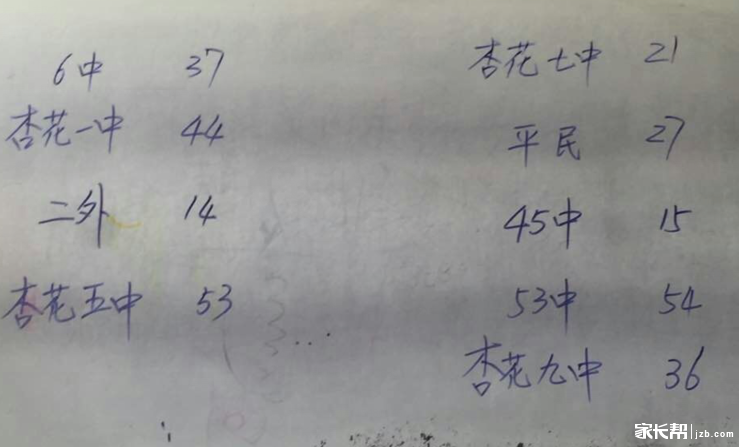 6中 37
杏花一中 44
二外 14
杏花五中 53
杏花七中 21
平民 27
45中 15
53中 54
杏花九中 36
家长帮 jzb.com